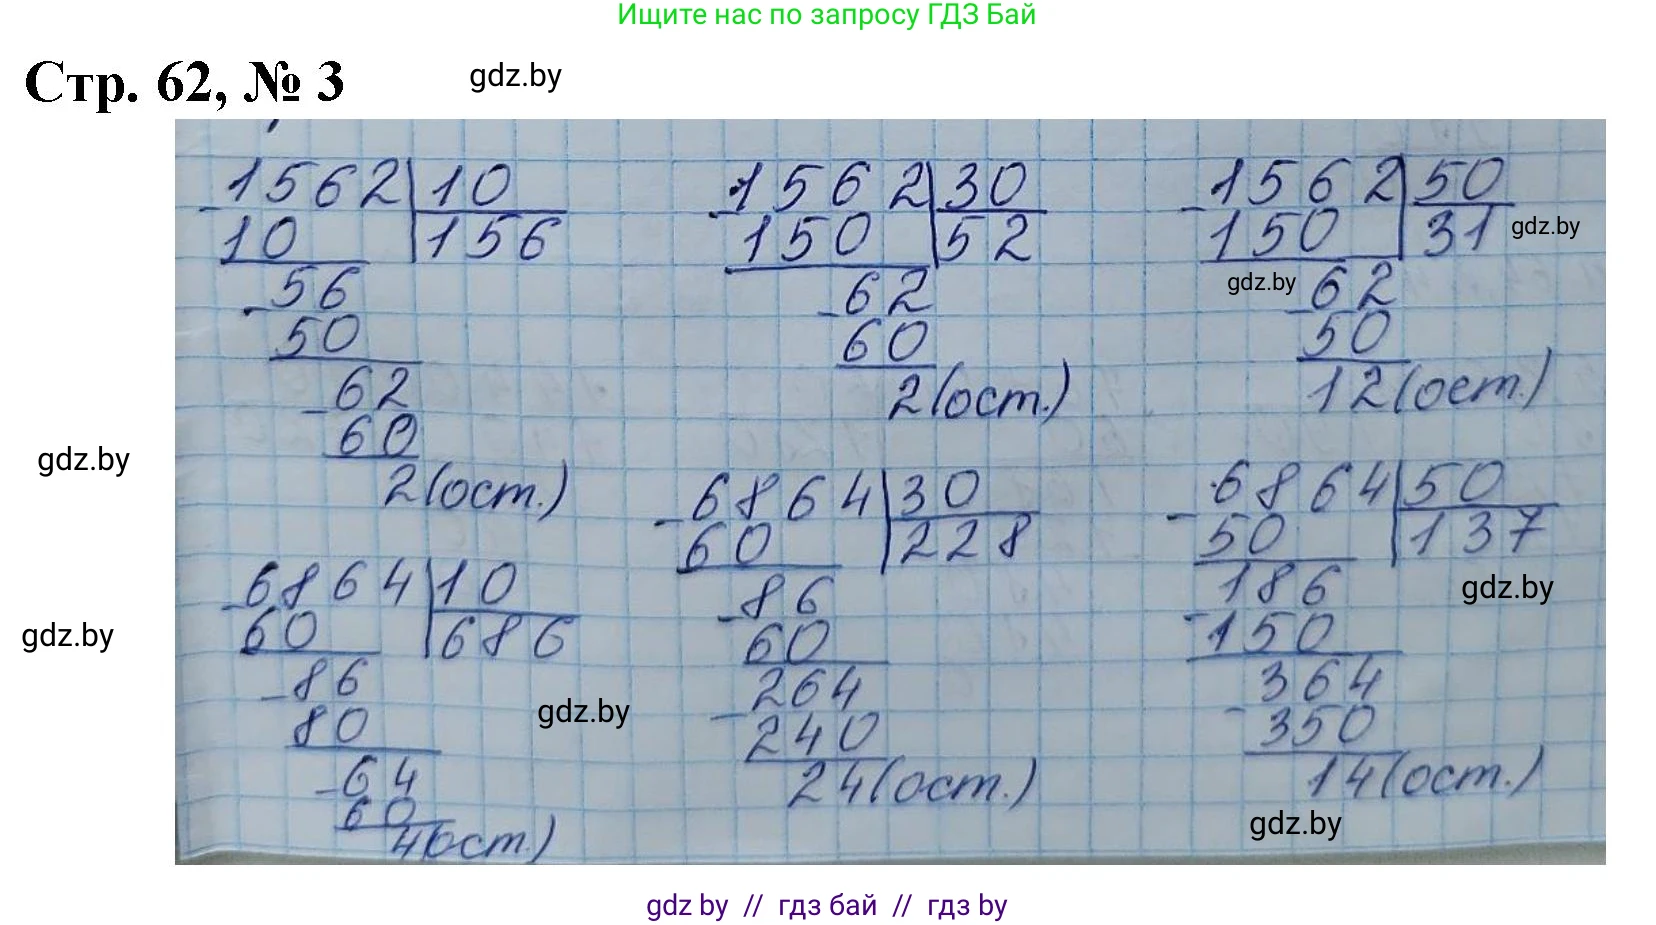 Ищите нас по запросу ГДЗ Бай
Стр. 62, № 3
gdz.by
1562 10
- 10 156
- 56
50
- 62
60
2 (ост.)
1562 30
- 150 52
- 62
60
2 (ост.)
1562 50
- 150 31
gdz.by
gdz.by
- 62
50
12 (ост.)
gdz.by
6864 10
- 60 686
- 86
80
- 64
60
4 (ост.)
gdz.by
gdz.by
6864 30
- 60 228
- 86
60
- 264
240
24 (ост.)
6864 50
- 50 137
gdz.by
- 186
150
- 364
350
14 (ост.)
gdz.by
gdz by // гдз бай // гдз by